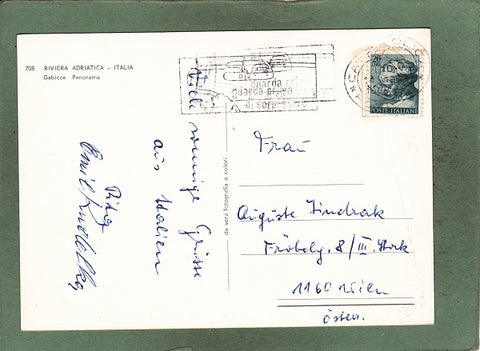 708 RIVIERA ADRIATICA - ITALIA
Gabicce Panorama
guarda
guarda prima
di sorpassare
POSTE ITALIANE
Viele sonnige Grüsse
aus Italien
Rita
Emil Kudelka
da vera fotografia a colori
Frau
Auguste Jindrak
Fröbelg. 8/III. Stock
1160 Wien
Österr.